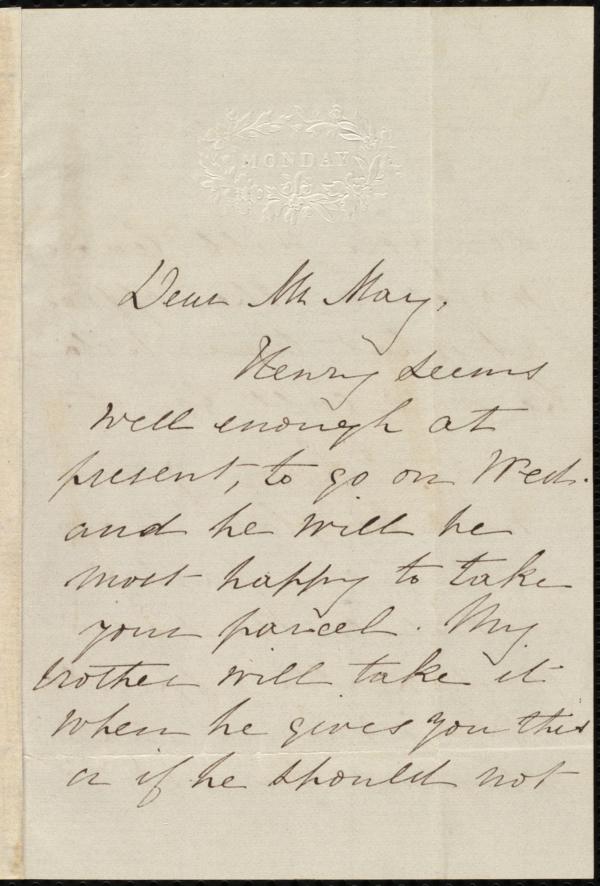 MONDAY
Dear Mr May,
Henry seems
well enough at
present, to go on Wed.
and he will be
most happy to take
your parcel. My
brother will take it
when he gives you this
or if he should not